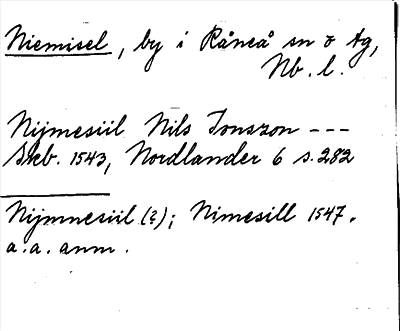 Niemisel, by i Råneå sn o tg,
Nb. l.
Nijmesiil Nils Jonszon ---
Skb. 1543, Nordlander 6 s. 282
Nijmnesiil (?); Nimesill 1547.
a. a. anm.